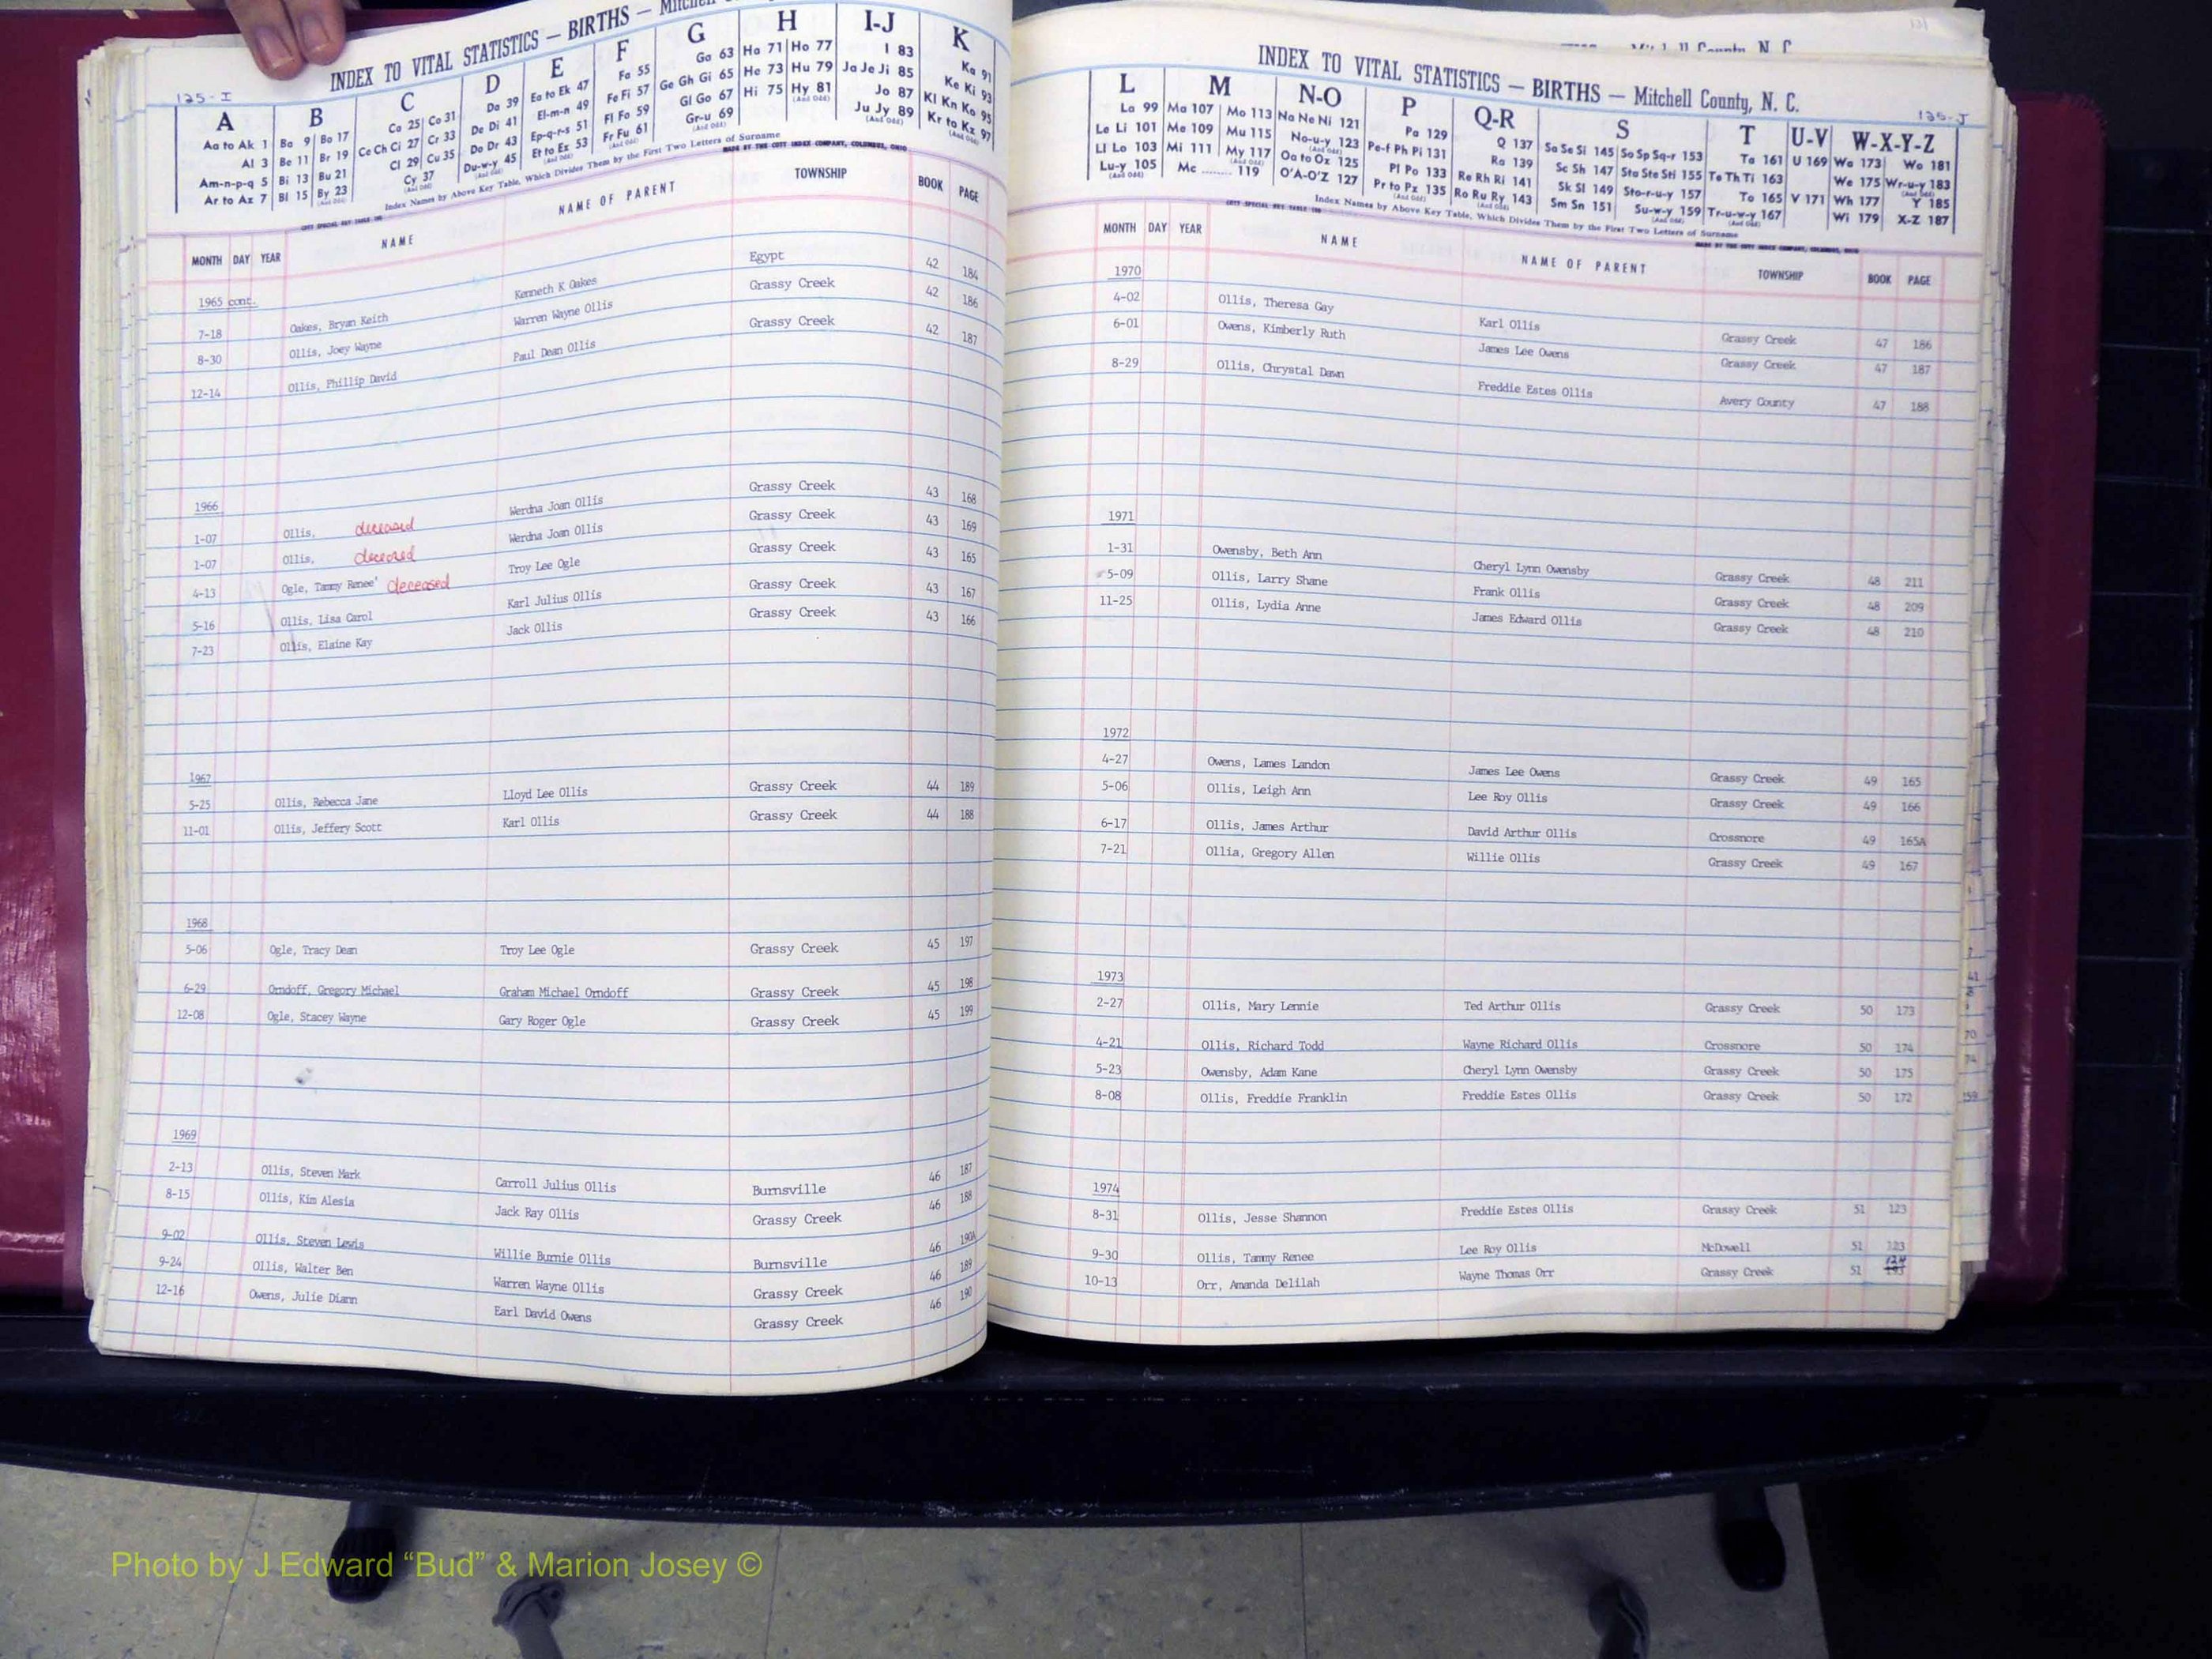 INDEX TO VITAL STATISTICS — BIRTHS — Mitchell
125-I
A B C D E F G H I-J K
Aa to Ak 1 Ba 9 Bo 17 Ca 25 Co 31 Da 39 Ea to Ek 47 Fa 55 Ga 63 Ha 71 Ho 77 I 83 Ka 91
Al 3 Be 11 Br 19 Ce Ch Ci 27 Cr 33 De Di 41 El-m-n 49 Fe Fi 57 Ge Gh Gi 65 He 73 Hu 79 Ja Je Ji 85 Ke Ki 93
Am-n-p-q 5 Bi 13 Bu 21 Cl 29 Cu 35 Do Dr 43 Ep-q-r-s 51 Fl Fo 59 Gl Go 67 Hi 75 Hy 81 Jo 87 Kl Kn Ko 95
Ar to Az 7 Bl 15 By 23 Cy 37 Du-w-y 45 Et to Ex 53 Fr Fu 61 Gr-u 69 Ju Jy 89 Kr to Kz 97
Index Names by Above Key Table, Which Divides Them by the First Two Letters of Surname
MADE BY THE COTT INDEX COMPANY, COLUMBUS, OHIO
MONTH DAY YEAR NAME NAME OF PARENT TOWNSHIP BOOK PAGE
1965 cont.
7-18 Oakes, Bryan Keith Kenneth K Oakes Egypt 42 184
8-30 Ollis, Joey Wayne Warren Wayne Ollis Grassy Creek 42 186
12-14 Ollis, Phillip David Paul Dean Ollis Grassy Creek 42 187
1966
1-07 Ollis, deceased Werdna Joan Ollis Grassy Creek 43 168
1-07 Ollis, deceased Werdna Joan Ollis Grassy Creek 43 169
4-13 Ogle, Tammy Renee' deceased Troy Lee Ogle Grassy Creek 43 165
5-16 Ollis, Lisa Carol Karl Julius Ollis Grassy Creek 43 167
7-23 Ollis, Elaine Kay Jack Ollis Grassy Creek 43 166
1967
5-25 Ollis, Rebecca Jane Lloyd Lee Ollis Grassy Creek 44 189
11-01 Ollis, Jeffery Scott Karl Ollis Grassy Creek 44 188
1968
5-06 Ogle, Tracy Dean Troy Lee Ogle Grassy Creek 45 197
6-29 Orndoff, Gregory Michael Graham Michael Orndoff Grassy Creek 45 198
12-08 Ogle, Stacey Wayne Gary Roger Ogle Grassy Creek 45 199
1969
2-13 Ollis, Steven Mark Carroll Julius Ollis Burnsville 46 187
8-15 Ollis, Kim Alesia Jack Ray Ollis Grassy Creek 46 188
9-02 Ollis, Steven Lewis Willie Burnie Ollis Burnsville 46 190A
9-24 Ollis, Walter Ben Warren Wayne Ollis Grassy Creek 46 189
12-16 Owens, Julie Diann Earl David Owens Grassy Creek 46 190
INDEX TO VITAL STATISTICS — BIRTHS — Mitchell County, N. C.
125-J
L M N-O P Q-R S T U-V W-X-Y-Z
La 99 Ma 107 Mo 113 Na Ne Ni 121 Pa 129 Q 137 Sa Se Si 145 So Sp Sq-r 153 Ta 161 U 169 Wa 173 Wo 181
Le Li 101 Me 109 Mu 115 No-u-y 123 Pe-f Ph Pi 131 Ra 139 Sc Sh 147 Sta Ste Sti 155 Te Th Ti 163 We 175 Wr-u-y 183
Ll Lo 103 Mi 111 My 117 Oa to Oz 125 Pl Po 133 Re Rh Ri 141 Sk Sl 149 Sto-r-u-y 157 To 165 V 171 Wh 177 Y 185
Lu-y 105 Mc ........ 119 O'A-O'Z 127 Pr to Pz 135 Ro Ru Ry 143 Sm Sn 151 Su-w-y 159 Tr-u-w-y 167 Wi 179 X-Z 187
Index Names by Above Key Table, Which Divides Them by the First Two Letters of Surname
MONTH DAY YEAR NAME NAME OF PARENT TOWNSHIP BOOK PAGE
1970
4-02 Ollis, Theresa Gay Karl Ollis Grassy Creek 47 186
6-01 Owens, Kimberly Ruth James Lee Owens Grassy Creek 47 187
8-29 Ollis, Chrystal Dawn Freddie Estes Ollis Avery County 47 188
1971
1-31 Owensby, Beth Ann Cheryl Lynn Owensby Grassy Creek 48 211
5-09 Ollis, Larry Shane Frank Ollis Grassy Creek 48 209
11-25 Ollis, Lydia Anne James Edward Ollis Grassy Creek 48 210
1972
4-27 Owens, Lames Landon James Lee Owens Grassy Creek 49 165
5-06 Ollis, Leigh Ann Lee Roy Ollis Grassy Creek 49 166
6-17 Ollis, James Arthur David Arthur Ollis Crossnore 49 165A
7-21 Ollia, Gregory Allen Willie Ollis Grassy Creek 49 167
1973
2-27 Ollis, Mary Lennie Ted Arthur Ollis Grassy Creek 50 173
4-21 Ollis, Richard Todd Wayne Richard Ollis Crossnore 50 174
5-23 Owensby, Adam Kane Cheryl Lynn Owensby Grassy Creek 50 175
8-08 Ollis, Freddie Franklin Freddie Estes Ollis Grassy Creek 50 172
1974
8-31 Ollis, Jesse Shannon Freddie Estes Ollis Grassy Creek 51 123
9-30 Ollis, Tammy Renee Lee Roy Ollis McDowell 51 123
10-13 Orr, Amanda Delilah Wayne Thomas Orr Grassy Creek 51 124
Photo by J Edward “Bud” & Marion Josey ©